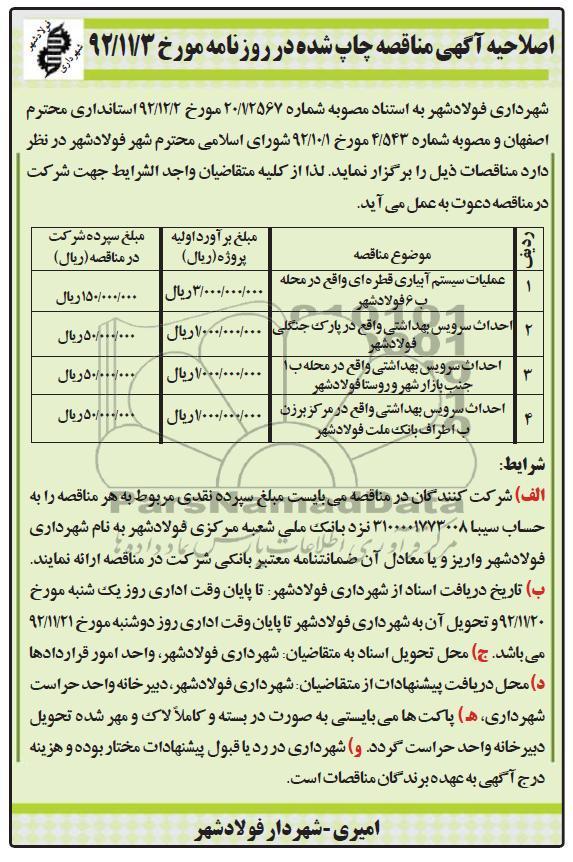 اصلاحیه آگهی مناقصه چاپ شده در روزنامه مورخ ۹۲/۱۱/۳
فولادشهر
شهرداری
شهرداری فولادشهر به استناد مصوبه شماره ۲۰/۱۲۵۶۷ مورخ ۹۲/۱۲/۲ استانداری محترم
اصفهان و مصوبه شماره ۴/۵۴۳ مورخ ۹۲/۱۰/۱ شورای اسلامی محترم شهر فولادشهر در نظر
دارد مناقصات ذیل را برگزار نماید. لذا از کلیه متقاضیان واجد الشرایط جهت شرکت
در مناقصه دعوت به عمل می آید.
ردیف موضوع مناقصه مبلغ برآورد اولیه پروژه (ریال) مبلغ سپرده شرکت در مناقصه (ریال)
۱ عملیات سیستم آبیاری قطره ای واقع در محله ب ۶ فولادشهر ۳/۰۰۰/۰۰۰/۰۰۰ ریال ۱۵۰/۰۰۰/۰۰۰ ریال
۲ احداث سرویس بهداشتی واقع در پارک جنگلی فولادشهر ۱/۰۰۰/۰۰۰/۰۰۰ ریال ۵۰/۰۰۰/۰۰۰ ریال
۳ احداث سرویس بهداشتی واقع در محله ب ۱ جنب بازار شهر و روستا فولادشهر ۱/۰۰۰/۰۰۰/۰۰۰ ریال ۵۰/۰۰۰/۰۰۰ ریال
۴ احداث سرویس بهداشتی واقع در مرکز برزن ب اطراف بانک ملت فولادشهر ۱/۰۰۰/۰۰۰/۰۰۰ ریال ۵۰/۰۰۰/۰۰۰ ریال
شرایط:
الف) شرکت کنندگان در مناقصه می بایست مبلغ سپرده نقدی مربوط به هر مناقصه را به
حساب سیبا ۳۱۰۰۰۰۱۷۷۳۰۰۸ نزد بانک ملی شعبه مرکزی فولادشهر به نام شهرداری
فولادشهر واریز و یا معادل آن ضمانتنامه معتبر بانکی شرکت در مناقصه ارائه نمایند.
ب) تاریخ دریافت اسناد از شهرداری فولادشهر: تا پایان وقت اداری روز یک شنبه مورخ
۹۲/۱۱/۲۰ و تحویل آن به شهرداری فولادشهر تا پایان وقت اداری روز دوشنبه مورخ ۹۲/۱۱/۲۱
می باشد. ج) محل تحویل اسناد به متقاضیان: شهرداری فولادشهر، واحد امور قراردادها
د) محل دریافت پیشنهادات از متقاضیان: شهرداری فولادشهر، دبیرخانه واحد حراست
شهرداری، ه) پاکت ها می بایستی به صورت در بسته و کاملاً لاک و مهر شده تحویل
دبیرخانه واحد حراست گردد. و) شهرداری در رد یا قبول پیشنهادات مختار بوده و هزینه
درج آگهی به عهده برندگان مناقصات است.
امیری - شهردار فولادشهر
ParsNamadData